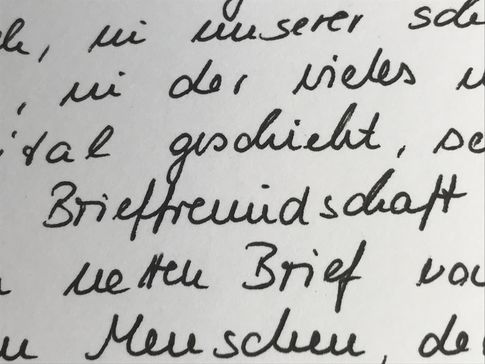 in unserer
, in der vieles
geschieht,
Brieffreundschaft
netten Brief
Menschen,